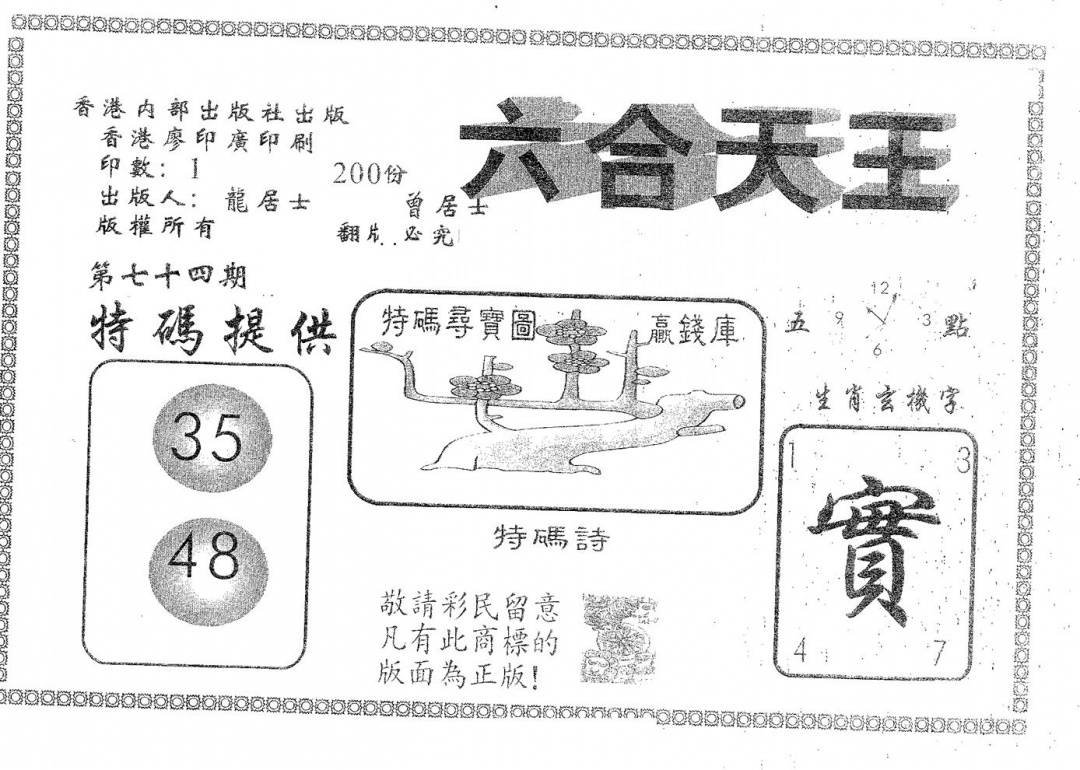 香港内部出版社出版
香港廖印廣印刷
印數：1 200份
出版人：龍居士 曾居士
版權所有 翻 必究
六合天王
第七十四期
特碼提供
35
48
特碼尋寶圖 贏錢庫
特碼詩
敬請彩民留意
凡有此商標的
版面為正版！
五 點
12
9 3
6
生肖玄機字
1 3
實
4 7